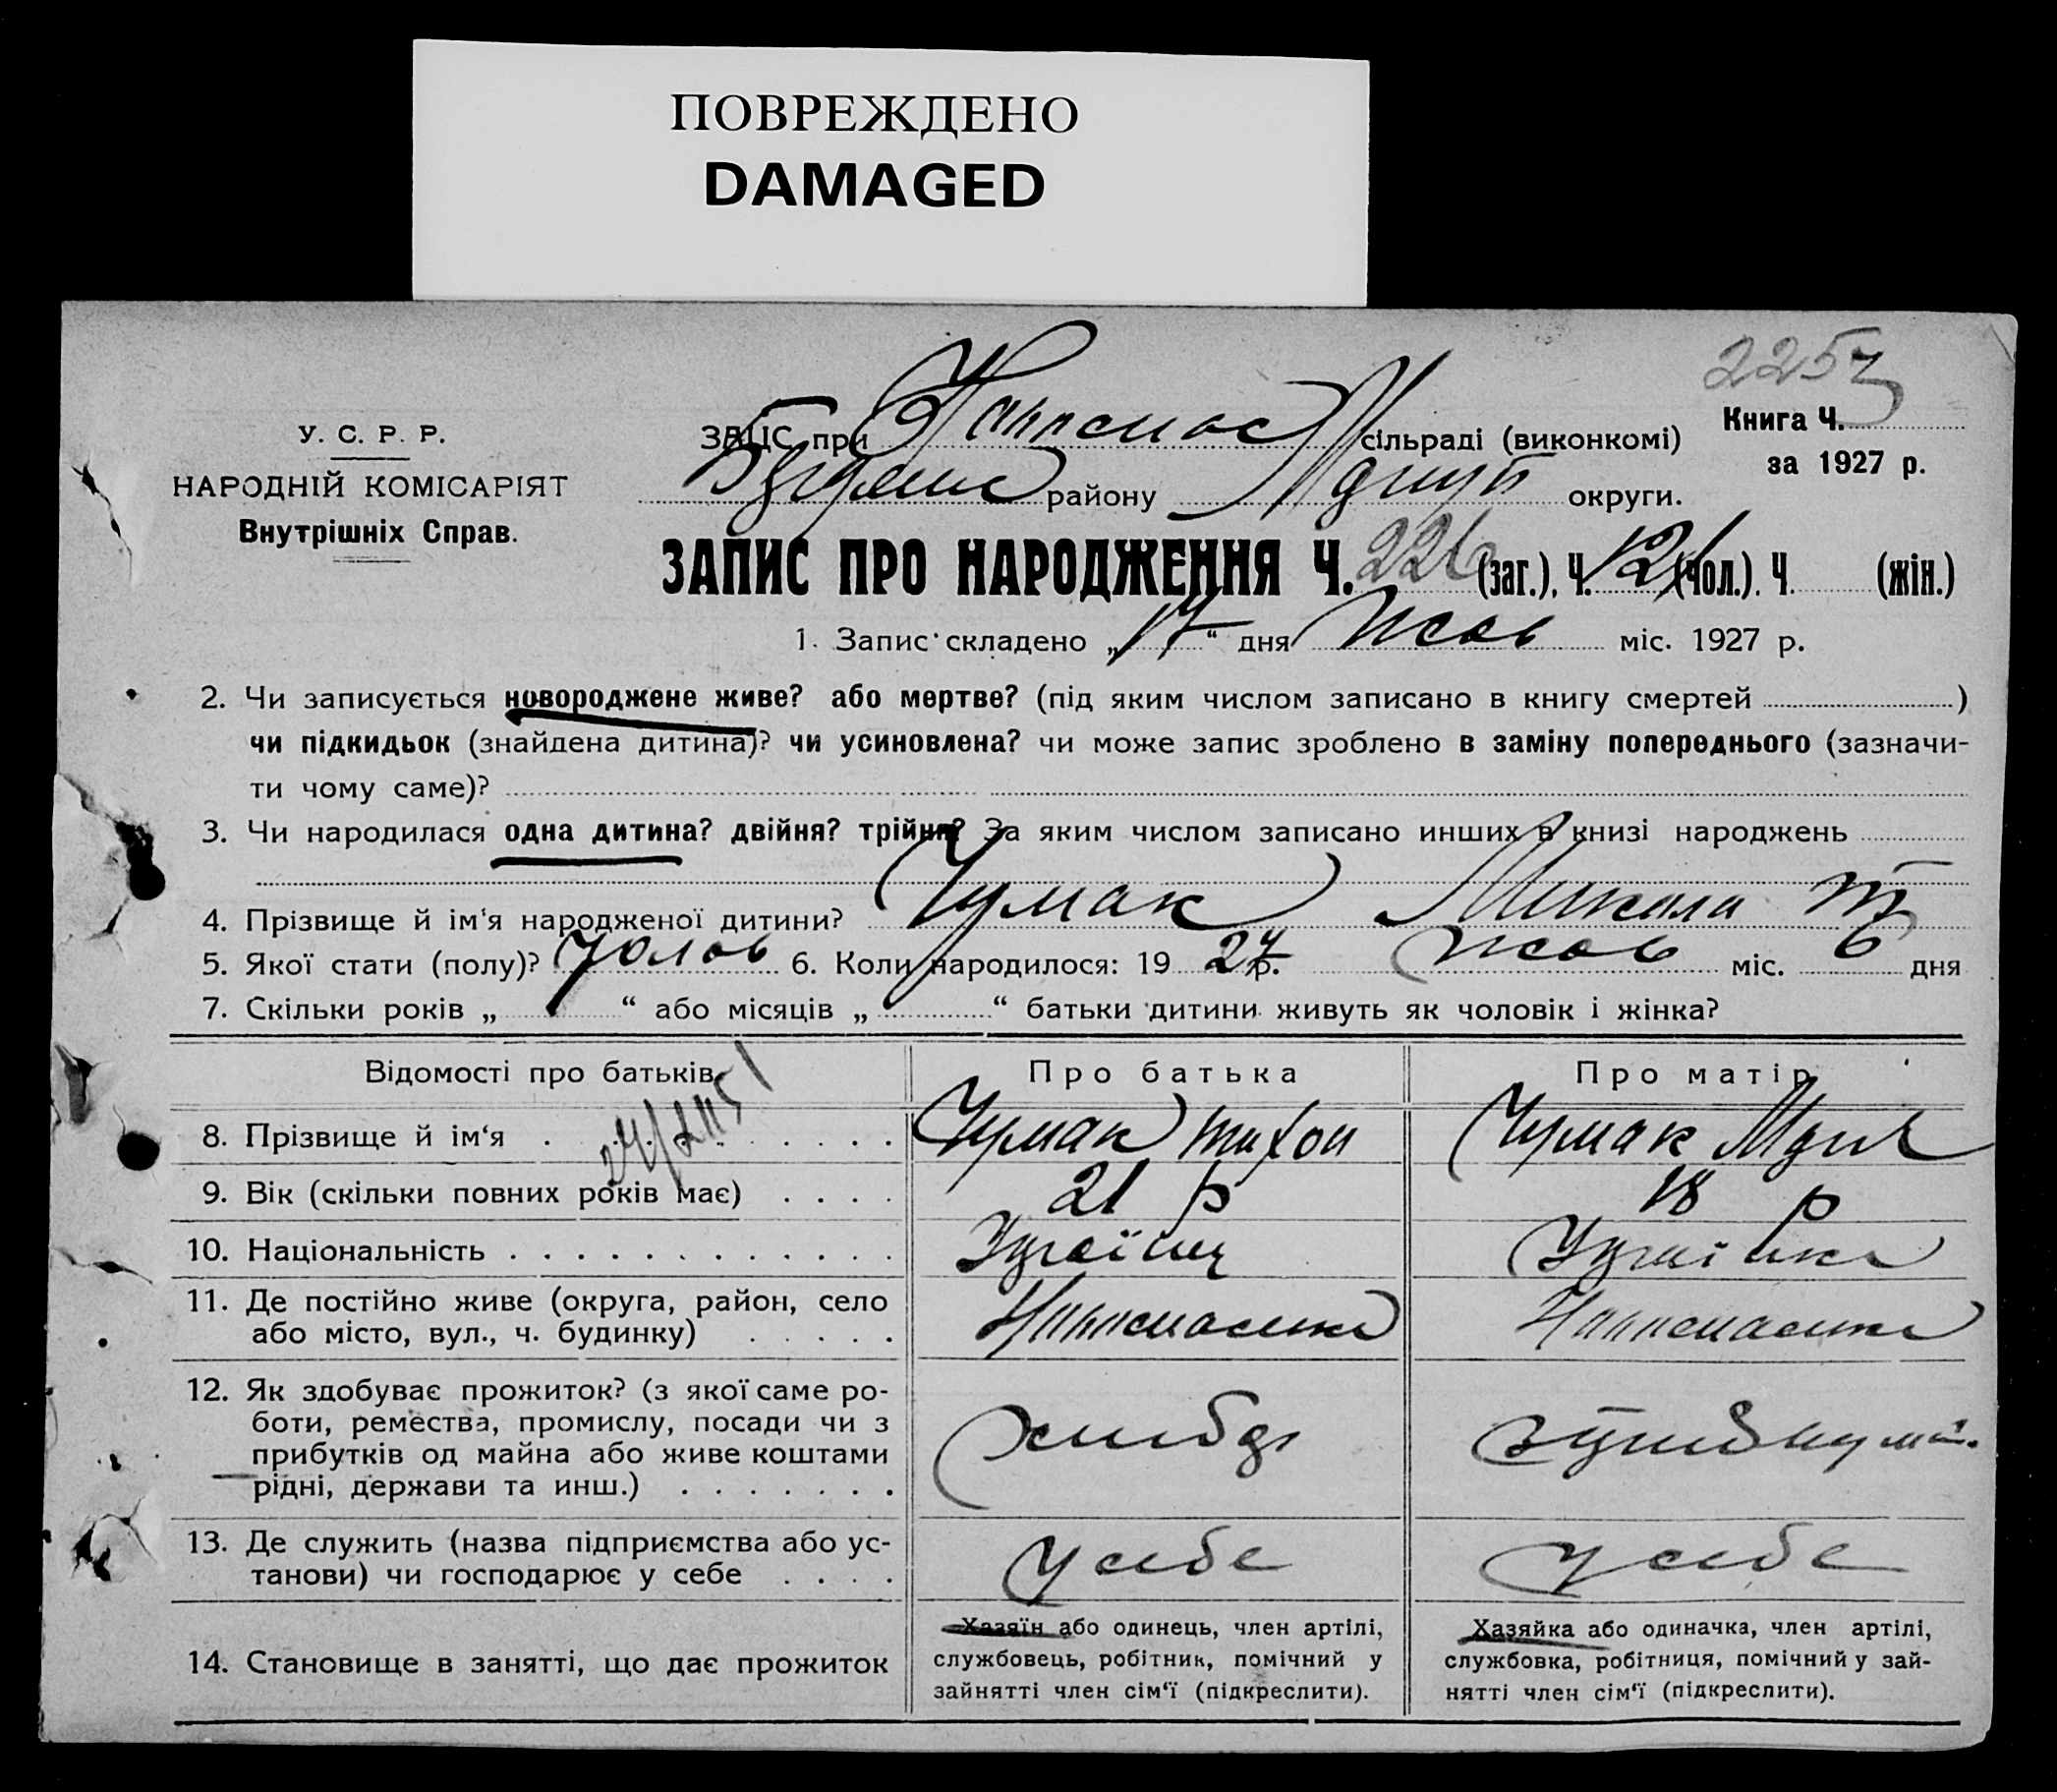 ПОВРЕЖДЕНО
DAMAGED
У. С. Р. Р.
НАРОДНІЙ КОМІСАРІЯТ
Внутрішніх Справ.
ЗАЦС при сільраді (виконкомі)
району округи.
Книга Ч.
за 1927 р.
ЗАПИС ПРО НАРОДЖЕННЯ Ч. 226 (заг.), Ч. 126 (чол.). Ч. (жін.)
1. Запис складено „17“ дня Жов міс. 1927 р.
2. Чи записується новороджене живе? або мертве? (під яким числом записано в книгу смертей )
чи підкидьок (знайдена дитина)? чи усиновлена? чи може запис зроблено в заміну попереднього (зазначи-
ти чому саме)?
3. Чи народилася одна дитина? двійня? трійня? За яким числом записано инших в книзі народжень
4. Прізвище й ім‘я народженої дитини? Чумак Микола Т
5. Якої стати (полу)? Чолов 6. Коли народилося: 1927 р. жов міс. 6 дня
7. Скільки років „ “ або місяців „ “ батьки дитини живуть як чоловік і жінка?
Відомості про батьків Про батька Про матір
8. Прізвище й ім‘я Чумак Тихон Чумак
9. Вік (скільки повних років має) 21 р 18 р
10. Національність Україн Українка
11. Де постійно живе (округа, район, село
або місто, вул., ч. будинку)
12. Як здобуває прожиток? (з якої саме ро-
боти, ремества, промислу, посади чи з
прибутків од майна або живе коштами
рідні, держави та инш.) хлібор
13. Де служить (назва підприємства або ус-
танови) чи господарює у себе у себе у себе
14. Становище в занятті, що дає прожиток
Хазяїн або одинець, член артілі,
службовець, робітник, помічний у
зайнятті член сім‘ї (підкреслити).
Хазяйка або одиначка, член артілі,
службовка, робітниця, помічний у зай-
нятті член сім‘ї (підкреслити).